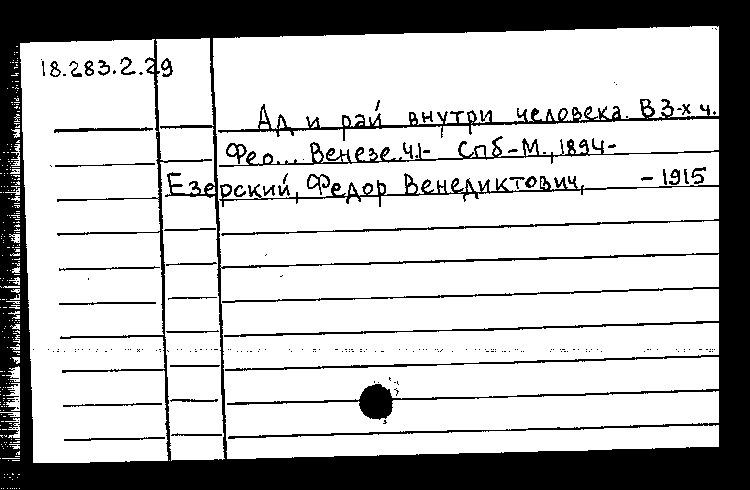 18.283.2.29
Ад и рай внутри человека. В 3-х ч.
Фео... Венезе. Ч.1- Спб-М., 1894-
Езерский, Федор Венедиктович, - 1915